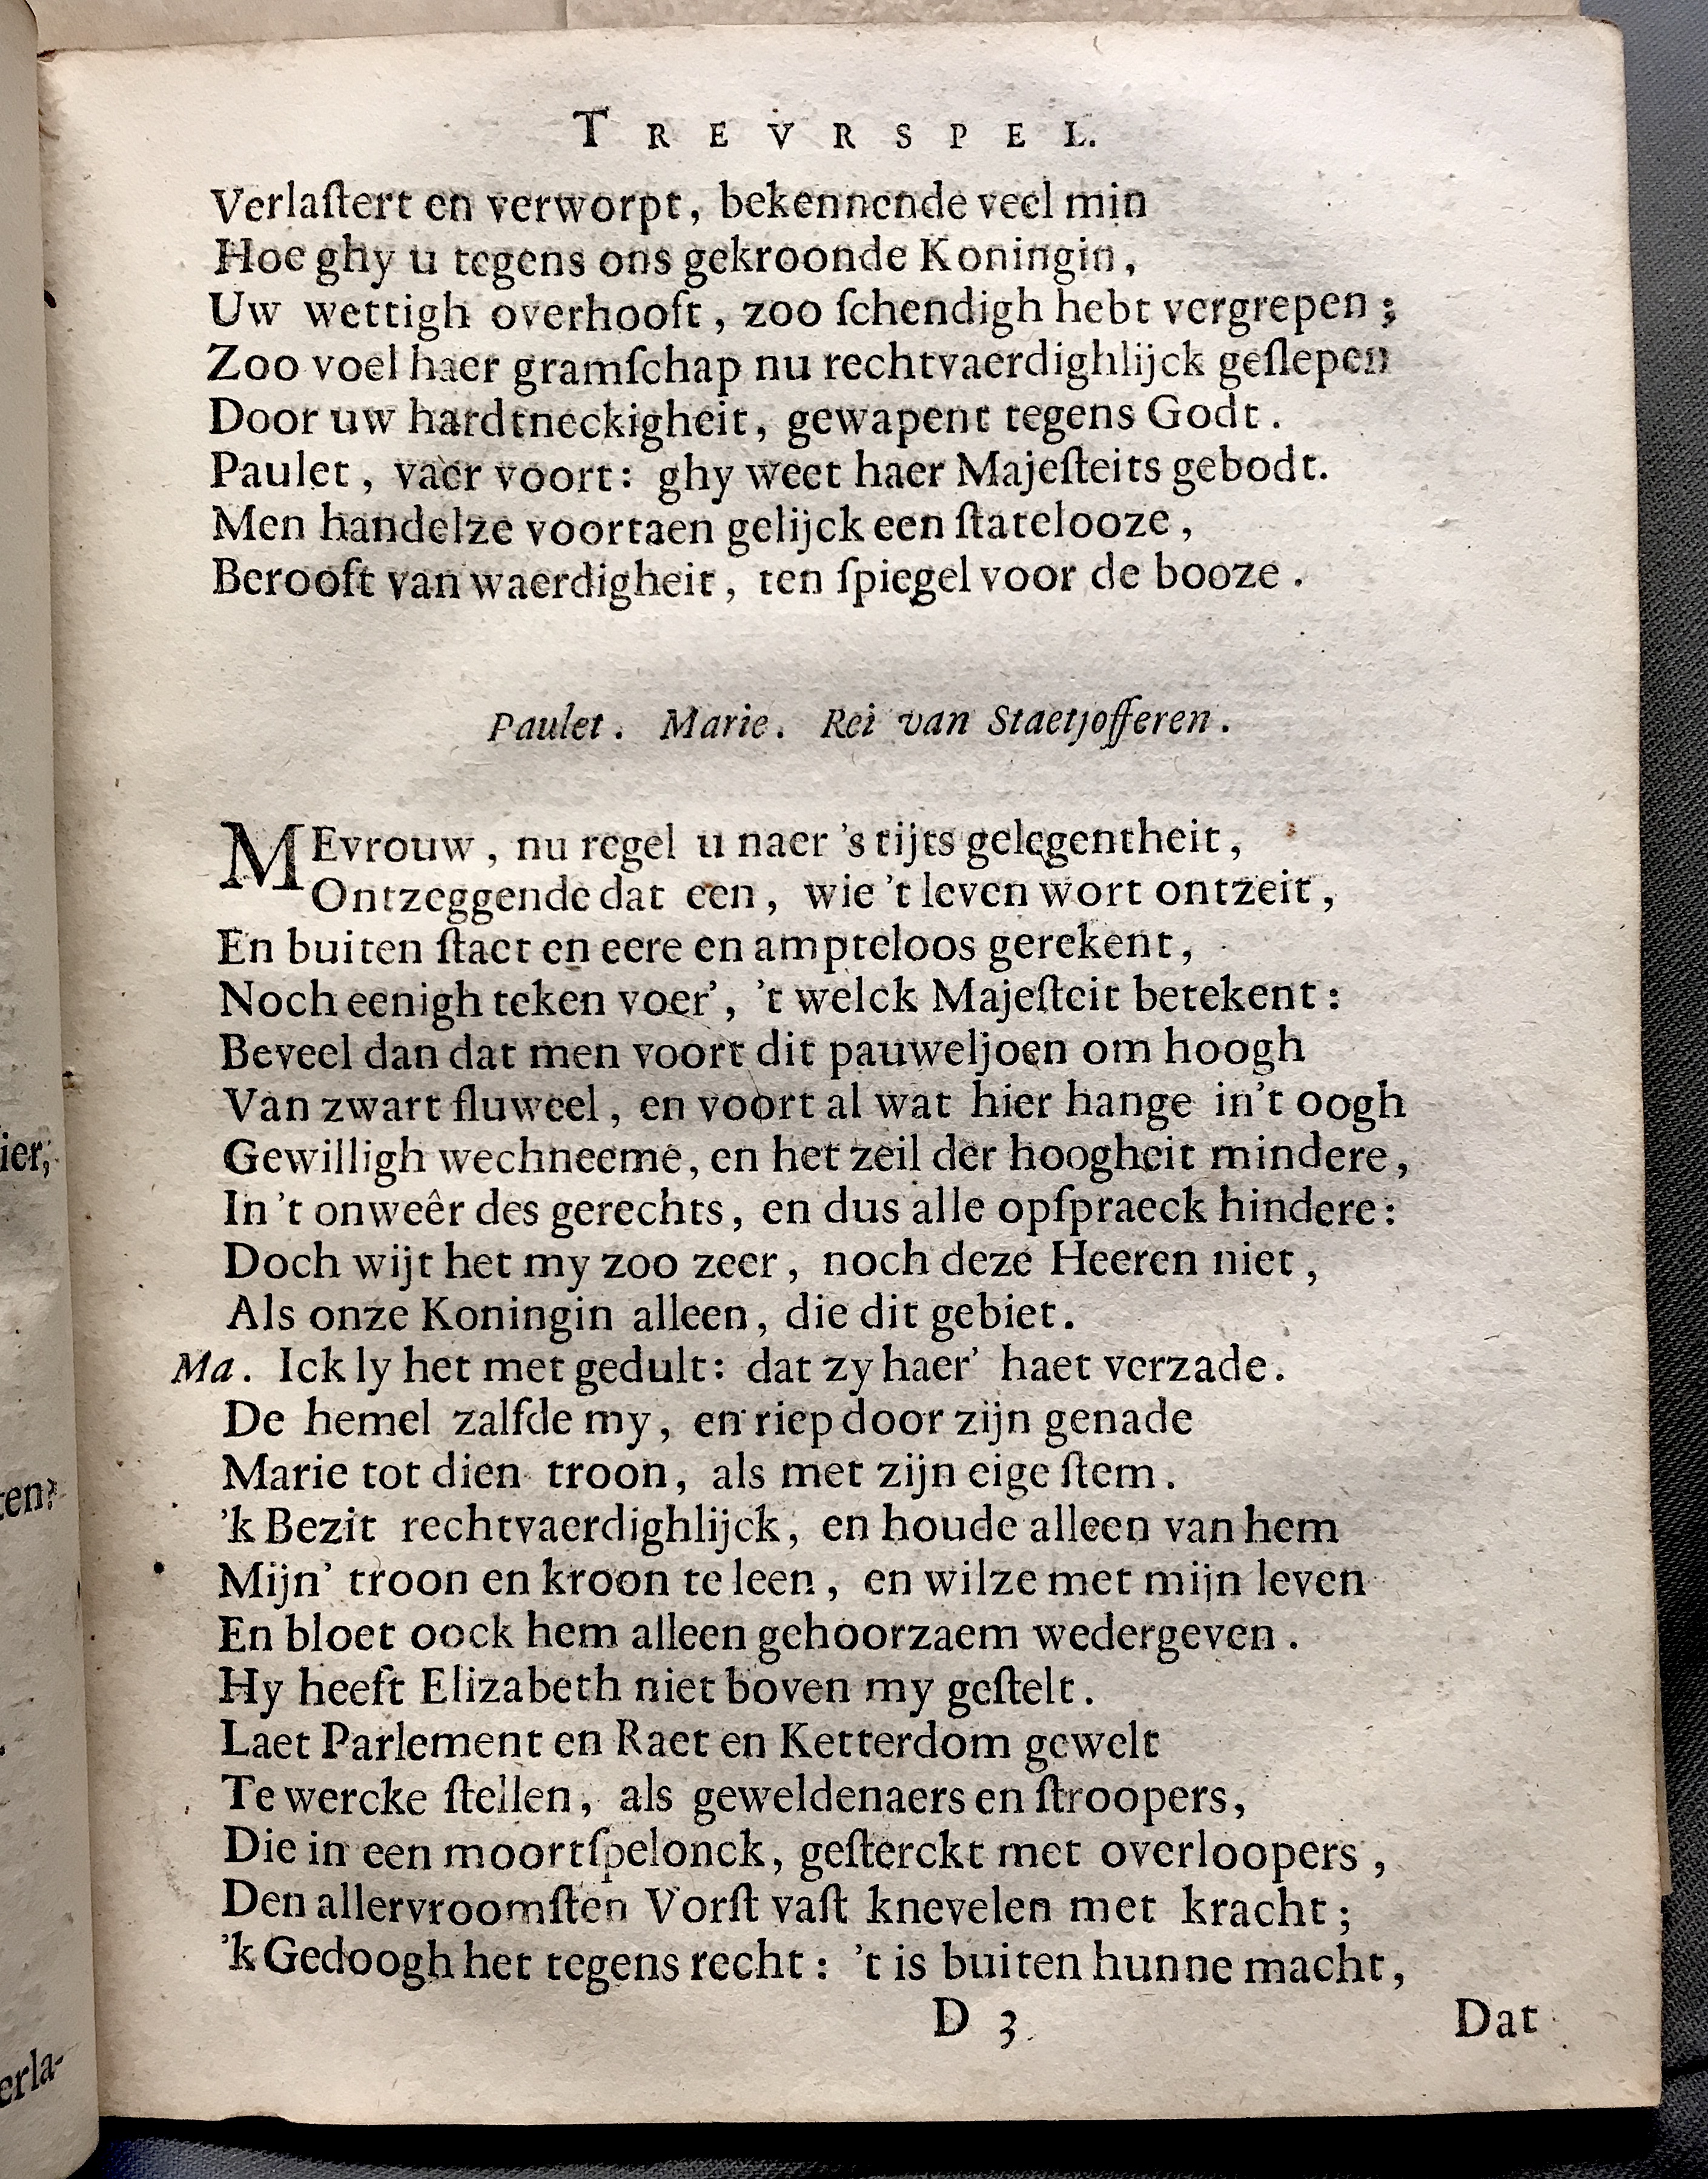 TREVRSPEL.
Verlaſtert en verworpt, bekennende veel min
Hoe ghy u tegens ons gekroonde Koningin,
Uw wettigh overhooft, zoo ſchendigh hebt vergrepen;
Zoo voel haer gramſchap nu rechtvaerdighlijck geſlepen
Door uw hardtneckigheit, gewapent tegens Godt.
Paulet, vaer voort: ghy weet haer Majeſteits gebodt.
Men handelze voortaen gelijck een ſtatelooze,
Berooft van waerdigheit, ten ſpiegel voor de booze.
Paulet. Marie. Rei van Staetjofferen.
MEvrouw, nu regel u naer 's tijts gelegentheit,
Ontzeggende dat een, wie 't leven wort ontzeit,
En buiten ſtaet en eere en ampteloos gerekent,
Noch eenigh teken voer', 't welck Majeſteit betekent:
Beveel dan dat men voort dit pauweljoen om hoogh
Van zwart fluweel, en voort al wat hier hange in't oogh
Gewilligh wechneeme, en het zeil der hoogheit mindere,
In 't onweêr des gerechts, en dus alle opſpraeck hindere:
Doch wijt het my zoo zeer, noch deze Heeren niet,
Als onze Koningin alleen, die dit gebiet.
Ma. Ick ly het met gedult: dat zy haer' haet verzade.
De hemel zalfde my, en riep door zijn genade
Marie tot dien troon, als met zijn eige ſtem.
'k Bezit rechtvaerdighlijck, en houde alleen van hem
Mijn' troon en kroon te leen, en wilze met mijn leven
En bloet oock hem alleen gehoorzaem wedergeven.
Hy heeft Elizabeth niet boven my geſtelt.
Laet Parlement en Raet en Ketterdom gewelt
Te wercke ſtellen, als geweldenaers en ſtroopers,
Die in een moortſpelonck, geſterckt met overloopers,
Den allervroomſten Vorſt vaſt knevelen met kracht;
'k Gedoogh het tegens recht: 't is buiten hunne macht,
D 3
Dat
ier,
ten?
erla-